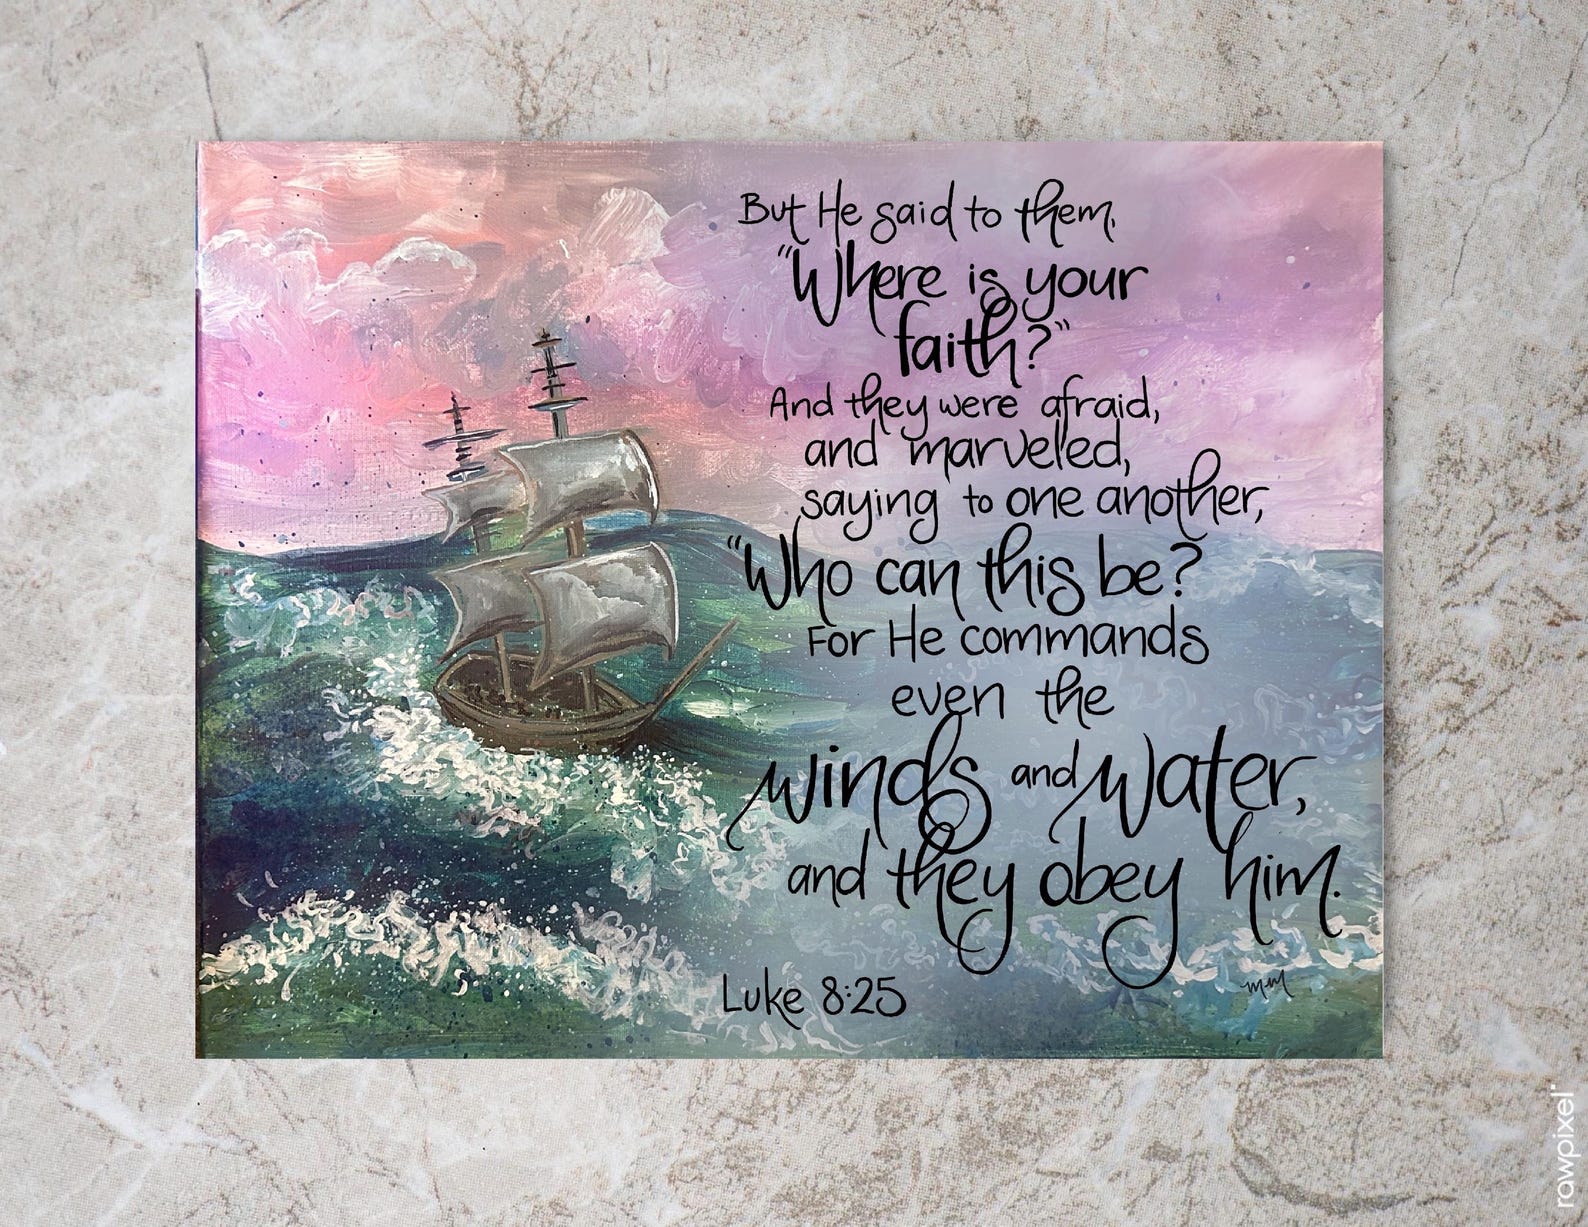 But He said to them,
"Where is your
faith?"
And they were afraid,
and marveled,
saying to one another,
"Who can this be?
For He commands
even the
winds and water,
and they obey him.
Luke 8:25
MM
rawpixel